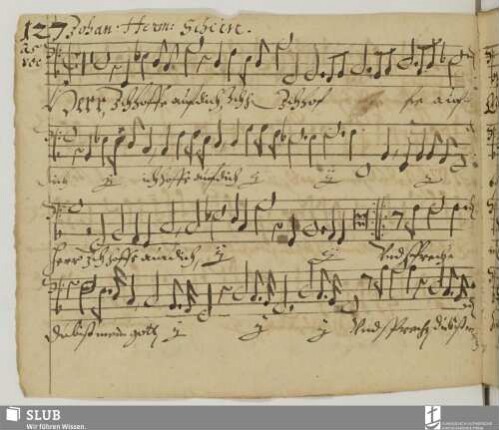 127 Johan: Herm: Schein.
Herr, Ich hoffe auf dich, Ich hof fe auf
dich ij ich hoffe auf dich ij ij ij
Herr Ich hoffe auf dich, ij ij Und spreche
du bist mein gott ij ij ij Und sprech du bist
SLUB
Wir führen Wissen.